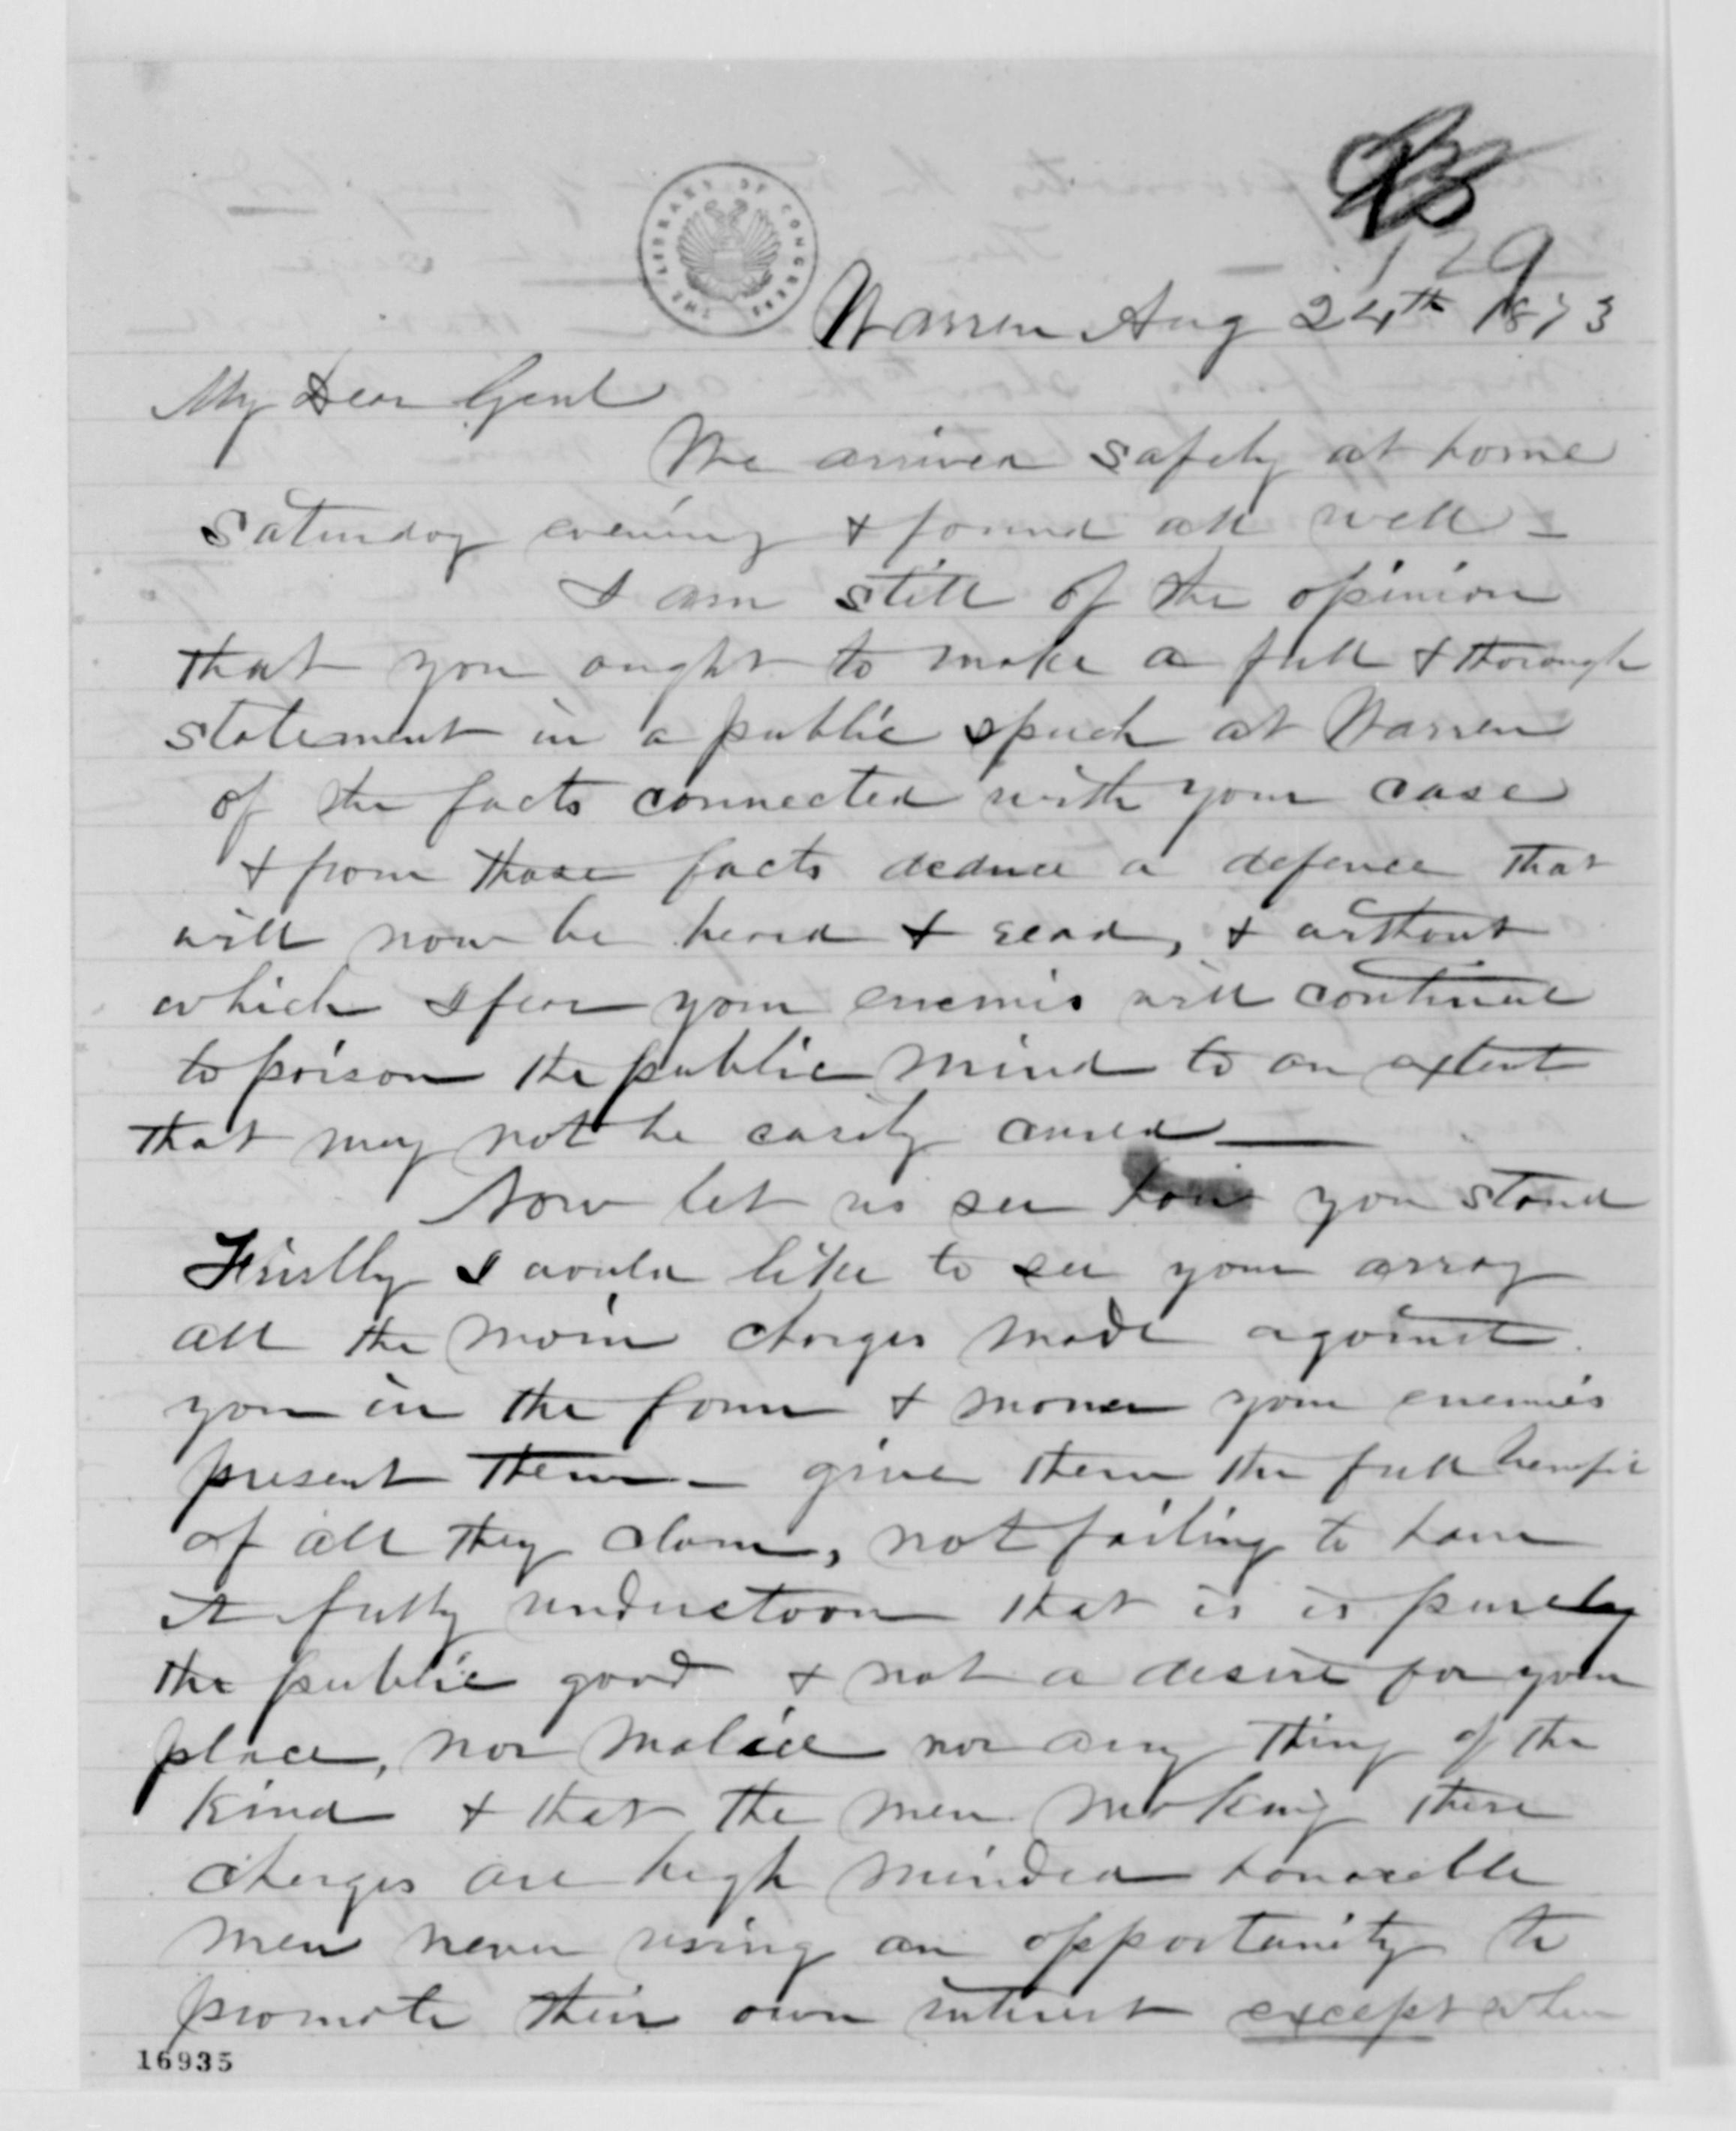 129
THE LIBRARY OF CONGRESS
Warren Aug 24th 1873
My Dear Genl
We arrived safely at home
Saturday evening & found all well —
I am still of the opinion
that you ought to make a full & thorough
statement in a public speech at Warren
of the facts connected with your case
& from those facts deduce a defence that
will now be heard & read, & without
which I fear your enemies will continue
to poison the public mind to an extent
that may not be easily cured —
Now let us see how you stand
Firstly I would like to see you array
all the main charges made against
you in the form & manner your enemies
present them — give them the full benefit
of all they claim, not failing to have
it fully understood that is is purely
the public good & not a desire for your
place, nor malice nor any thing of the
kind & that the men making these
charges are high minded honorable
men never using an opportunity to
promote their own interest except when
16935